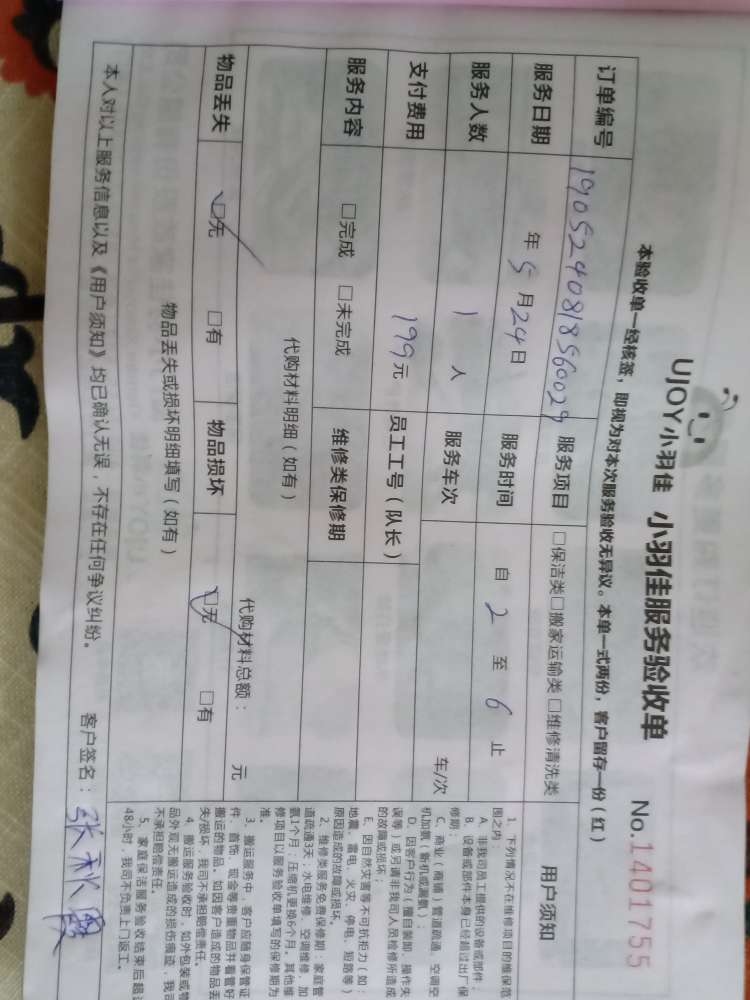 UJOY小羽佳 小羽佳服务验收单 No.1401755
本验收单一经核签，即视为对本次服务验收无异议。本单一式两份，客户留存一份（红）
订单编号 1905240818560029 服务项目 □保洁类□搬家运输类 □维修清洗类 用户须知
服务日期 年 5 月 24 日 服务时间 自 2 至 6 止
服务人数 1 人 服务车次 车/次
支付费用 199元 员工工号（队长）
服务内容 □完成 □未完成 维修类保修期
代购材料明细（如有）
代购材料总额： 元
物品丢失 □无 □有 物品损坏 □无 □有
物品丢失或损坏明细填写（如有）
1、下列情况不在维修项目的维保范
围之内：
A、非我司员工提供的设备或部件；
B、设备或部件本身已经超过出厂保
修期；
C、商业（商铺）管道疏通、空调空
机加氨（新机或漏氨）；
D、因客户行为（擅自装卸、操作失
误等）或另请非我司人员检修所造成
的故障或损坏；
E、因自然灾害等不可抗拒力（如：
地震、雷电、火灾、停电、短路等）
原因造成的故障或损坏。
2、维修类服务免费保修期：家庭管
道疏通3天；水电维修、空调维修、加
氨1个月；压缩机更换6个月。其他维
修项目以服务验收单填写的保修期为
准。
3、搬运服务中，客户应随身保管证
件、首饰、现金等贵重物品并看管好
搬运的物品。如因客户造成的物品丢
失/损坏，我司不承担赔偿责任。
4、搬运服务验收时，如外包装或物
品外观无搬运造成的损伤痕迹，我司
不承担赔偿责任。
5、家庭保洁服务验收结束后超过
48小时，我司不负责上门返工。
本人对以上服务信息以及《用户须知》均已确认无误，不存在任何争议纠纷。 客户签名：张秋